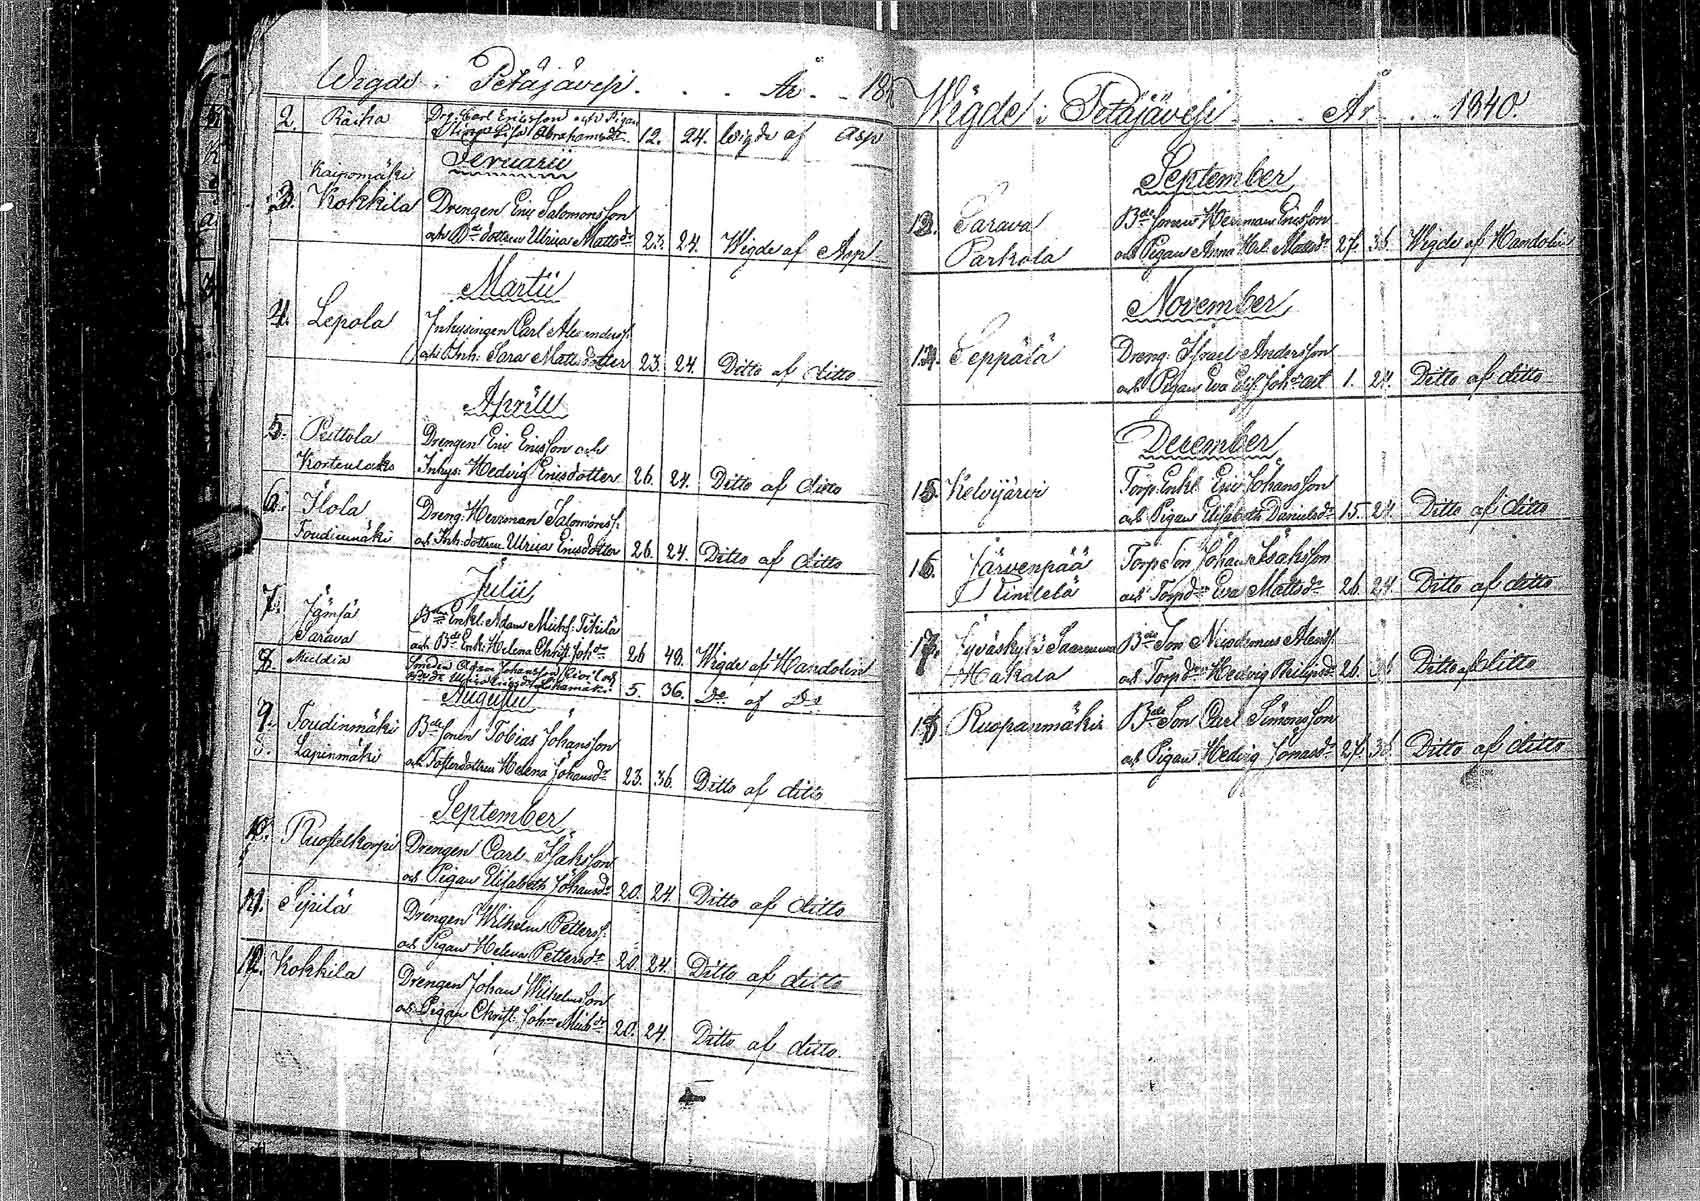 Wigde i Petäjävesi . . . År . . 184
2. Raiha Dr: Carl Ericsson och Pigan
Lisa Abrahamsdr 12. 24. Wigde af Asp
Februarii
Kaipomäki
3. Kokkila Drengen Eric Salomonsson
och Bde dottren Ulrica Mattsdr 23. 24. Wigde af Asp
Martii
4. Lepola Inhysingen Carl Alexanderss:
och Inh: Sara Mattsdotter 23. 24. Ditto af ditto
Aprill
5. Peittola Drengen Eric Ericsson och
Kortenlaks Inhys: Hedvig Ericsdotter 26. 24. Ditto af ditto
6. Ilola Dreng: Herrman Salomonss:
Toudinmäki och Inh: dottren Ulrica Ericsdotter 26. 24. Ditto af ditto
Julii
7. Jämsä Bde Enkl: Adam Michs: Tikilä
Sarava och Bde Enk: Helena Christ: Johdr 26 40. Wigde af Handolin
8. Smeden Johansson
5. 36. Do af Do
Augusti
9. Toudinmäki Bde Sonen Tobias Johansson
8. Lapinmäki och Fosterdottren Helena Johansdr 23. 36. Ditto af ditto
September
10. Ruostelkorpi Drengen Carl Isaksson
och Pigan Elisabeth Johansdr 20. 24. Ditto af ditto
11. Sipilä Drengen Wilhelm Petterss:
och Pigan Helena Pettersdr 20. 24. Ditto af ditto
12. Kokkila Drengen Johan Wilhelmsson
och Pigan Christ: Johna Michdr 20. 24. Ditto af ditto.
Wigde i Petäjävesi . . År . . . 1840.
September
13. Sarava Bde Sonen Herrman Ericsson
Parkola och Pigan Anna Hel: Mattsdr 27. 36. Wigde af Handolin
November
14. Seppälä Dreng: Israel Andersson
och Pigan Eva Elis: Johsdr 1. 24. Ditto af ditto
December
15. Kelvijärvi Torp: Enkl. Eric Johansson
och Pigan Elisabeth Danielsdr 15. 24. Ditto af ditto
16. Järvenpää Torp Son Johan Isaksson
och Torpdr Eva Mattsdr 26. 24. Ditto af ditto
17. Jyväskylä Saarenmaa Bde Son Alands:
Makala och Torpdr Hedvig Philipsdr 26. 36 Ditto af ditto
18 Ruopanmäki Bde Son Carl Simonsson
och Pigan Hedvig Jonasdr 27. 36. Ditto af ditto